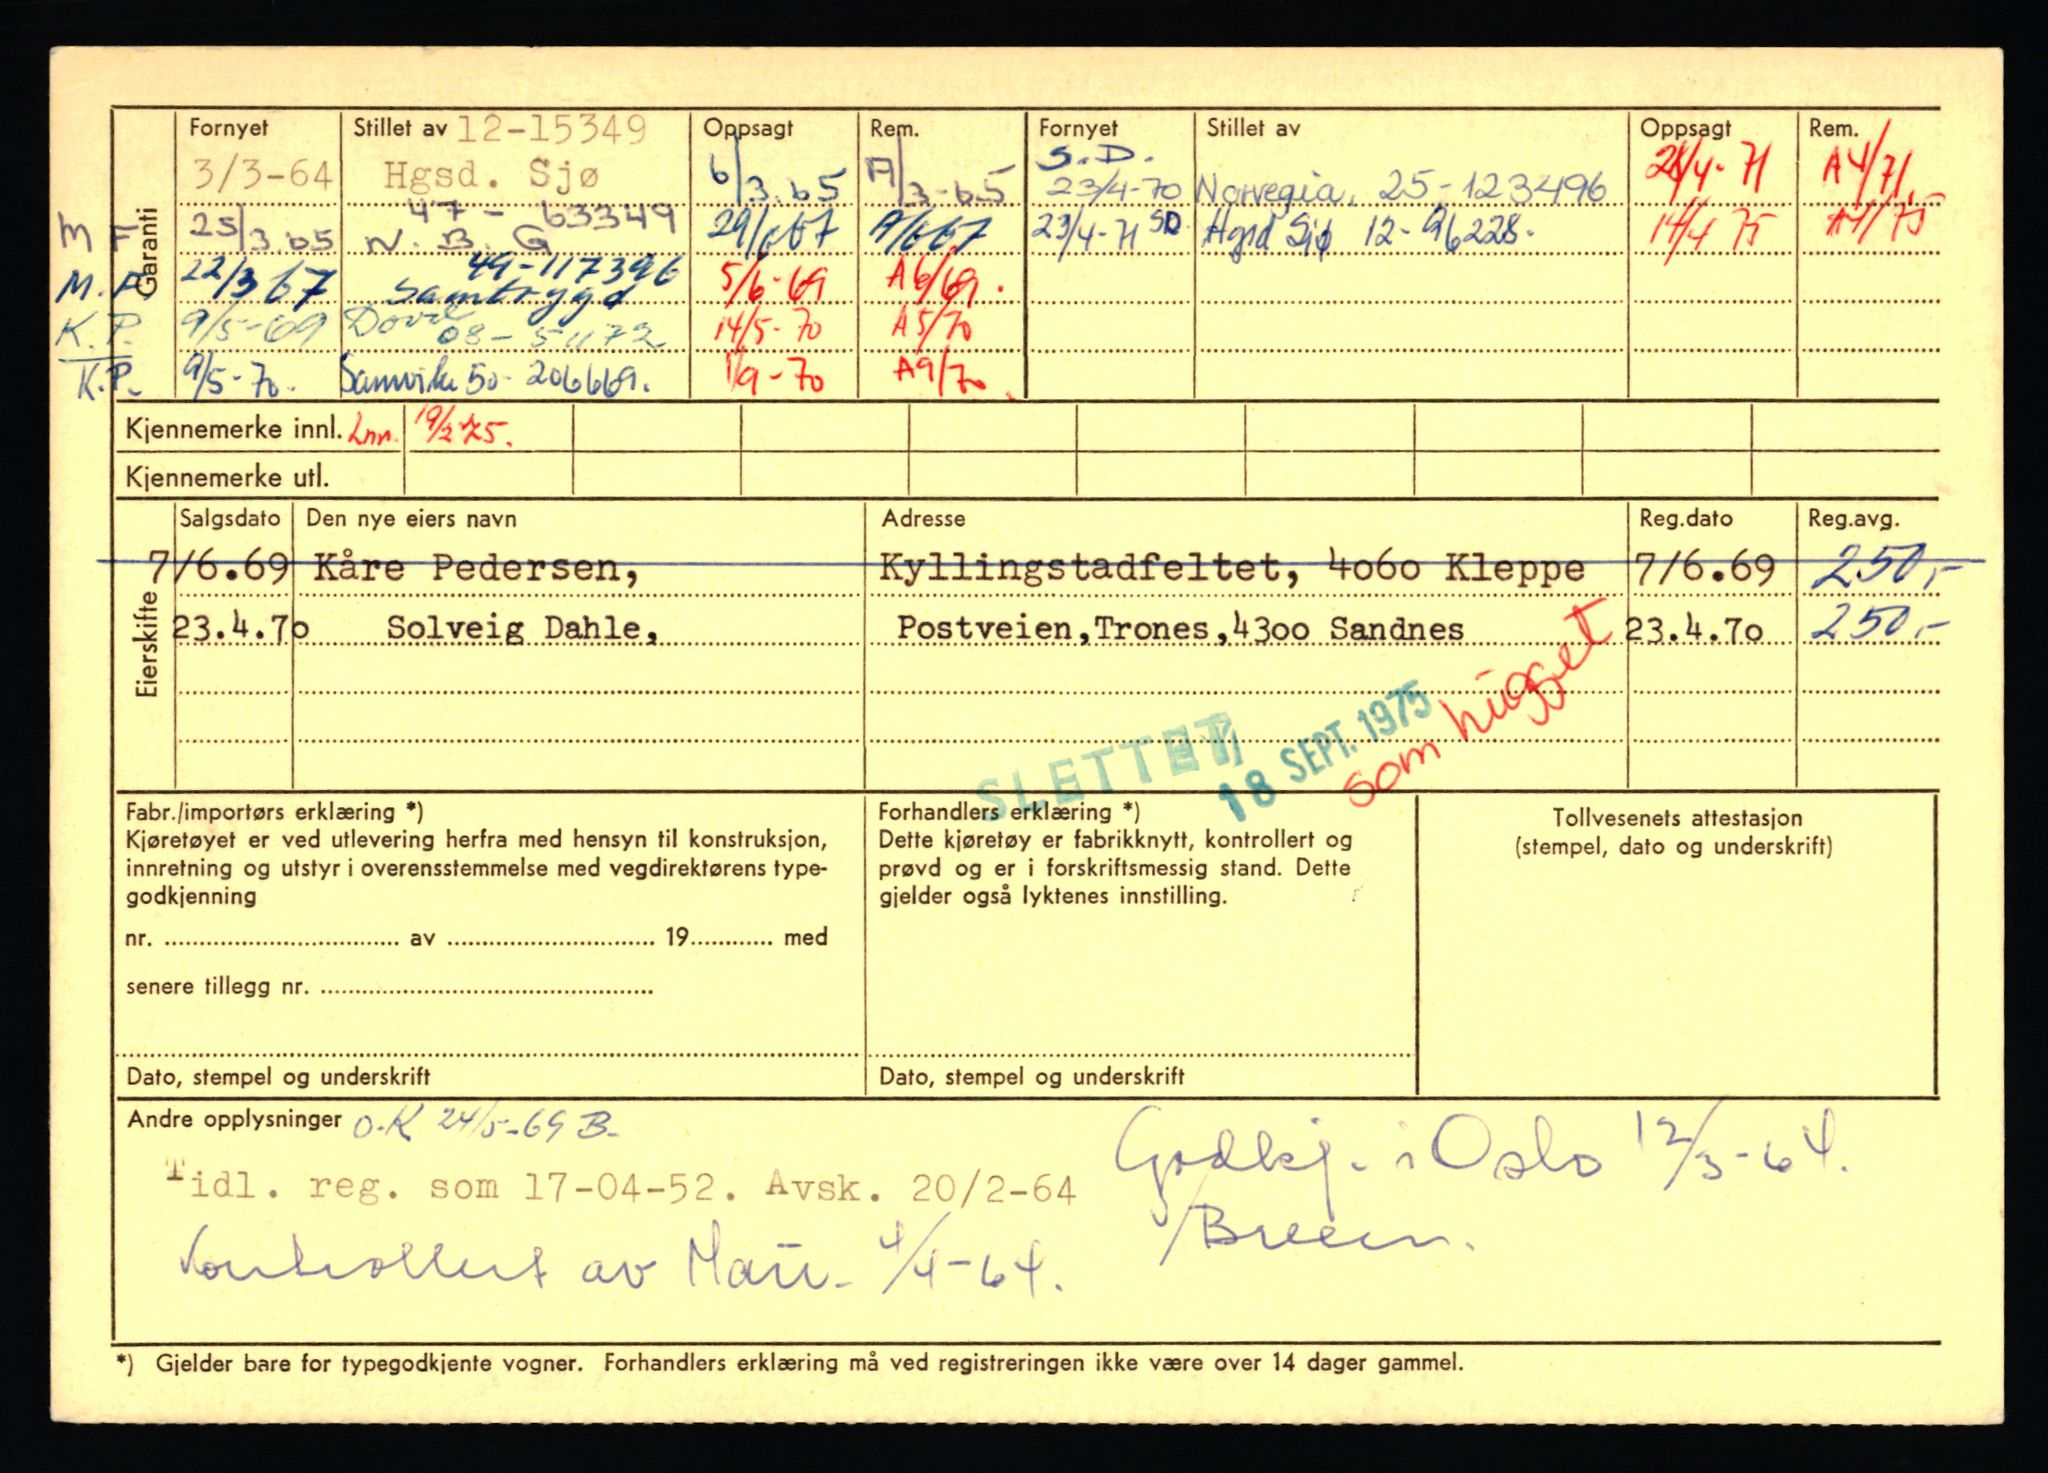 Garanti
Fornyet Stillet av 12-15349 Oppsagt Rem. Fornyet Stillet av Oppsagt Rem.
3/3-64 Hgsd. Sjø 6/3.65 A/3-65 S.D. 23/4-70 Norvegia. 25-123496 28/4-71 A4/71.
M F 25/3.65 47-63349 N.B.G 29/6.67 A/667 23/4-71 SD Hgsd Sjø 12-96228. 14/4 75 A4/75
M.F 22/3 67 49-117396 Samtrygd 5/6-69 A6/69.
K.P. 9/5-69 08-51172 14/5-70 A5/70
K.P. 9/5-70. Samvirke 50-206669. 1/9-70 A9/70
Kjennemerke innl. Inn. 19/2 75.
Kjennemerke utl.
Eierskifte
Salgsdato Den nye eiers navn Adresse Reg.dato Reg.avg.
7/6.69 Kåre Pedersen, Kyllingstadfeltet, 4060 Kleppe 7/6.69 250,-
23.4.70 Solveig Dahle, Postveien, Trones, 4300 Sandnes 23.4.70 250,-
SLETTET
18 SEPT. 1975
som hugget
Fabr./importørs erklæring *)
Kjøretøyet er ved utlevering herfra med hensyn til konstruksjon,
innretning og utstyr i overensstemmelse med vegdirektørens type-
godkjenning
nr. av 19 med
senere tillegg nr.
Dato, stempel og underskrift
Forhandlers erklæring *)
Dette kjøretøy er fabrikknytt, kontrollert og
prøvd og er i forskriftsmessig stand. Dette
gjelder også lyktenes innstilling.
Dato, stempel og underskrift
Tollvesenets attestasjon
(stempel, dato og underskrift)
Andre opplysninger O.K 24/5-69 B.
Tidl. reg. som 17-04-52. Avsk. 20/2-64
Godkj. i Oslo 12/3-64.
Kontrollert av 4/4-64.
*) Gjelder bare for typegodkjente vogner. Forhandlers erklæring må ved registreringen ikke være over 14 dager gammel.